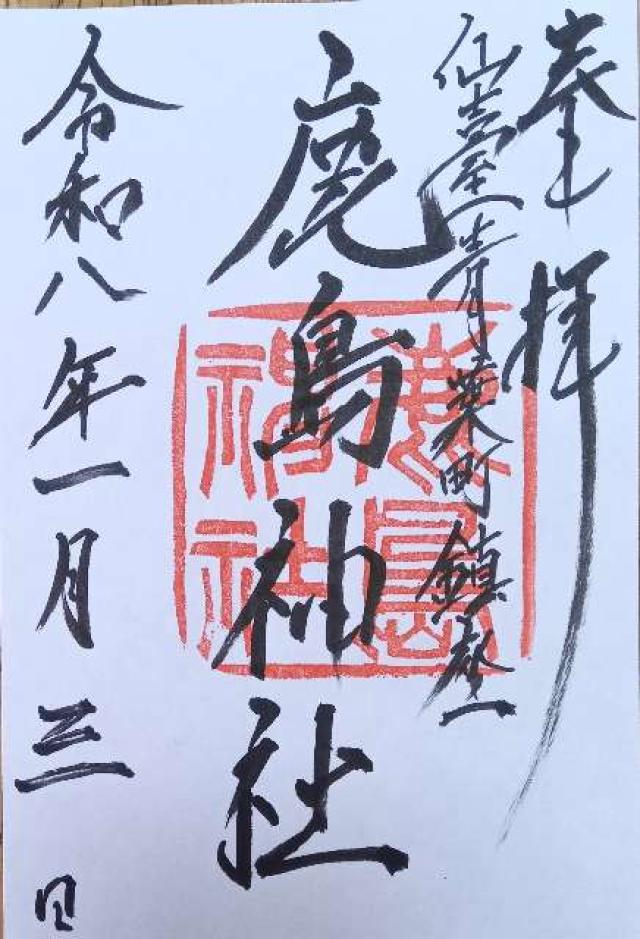 奉拝
仙臺青葉町鎮座
鹿島神社
鹿島
神社
令和八年一月三日